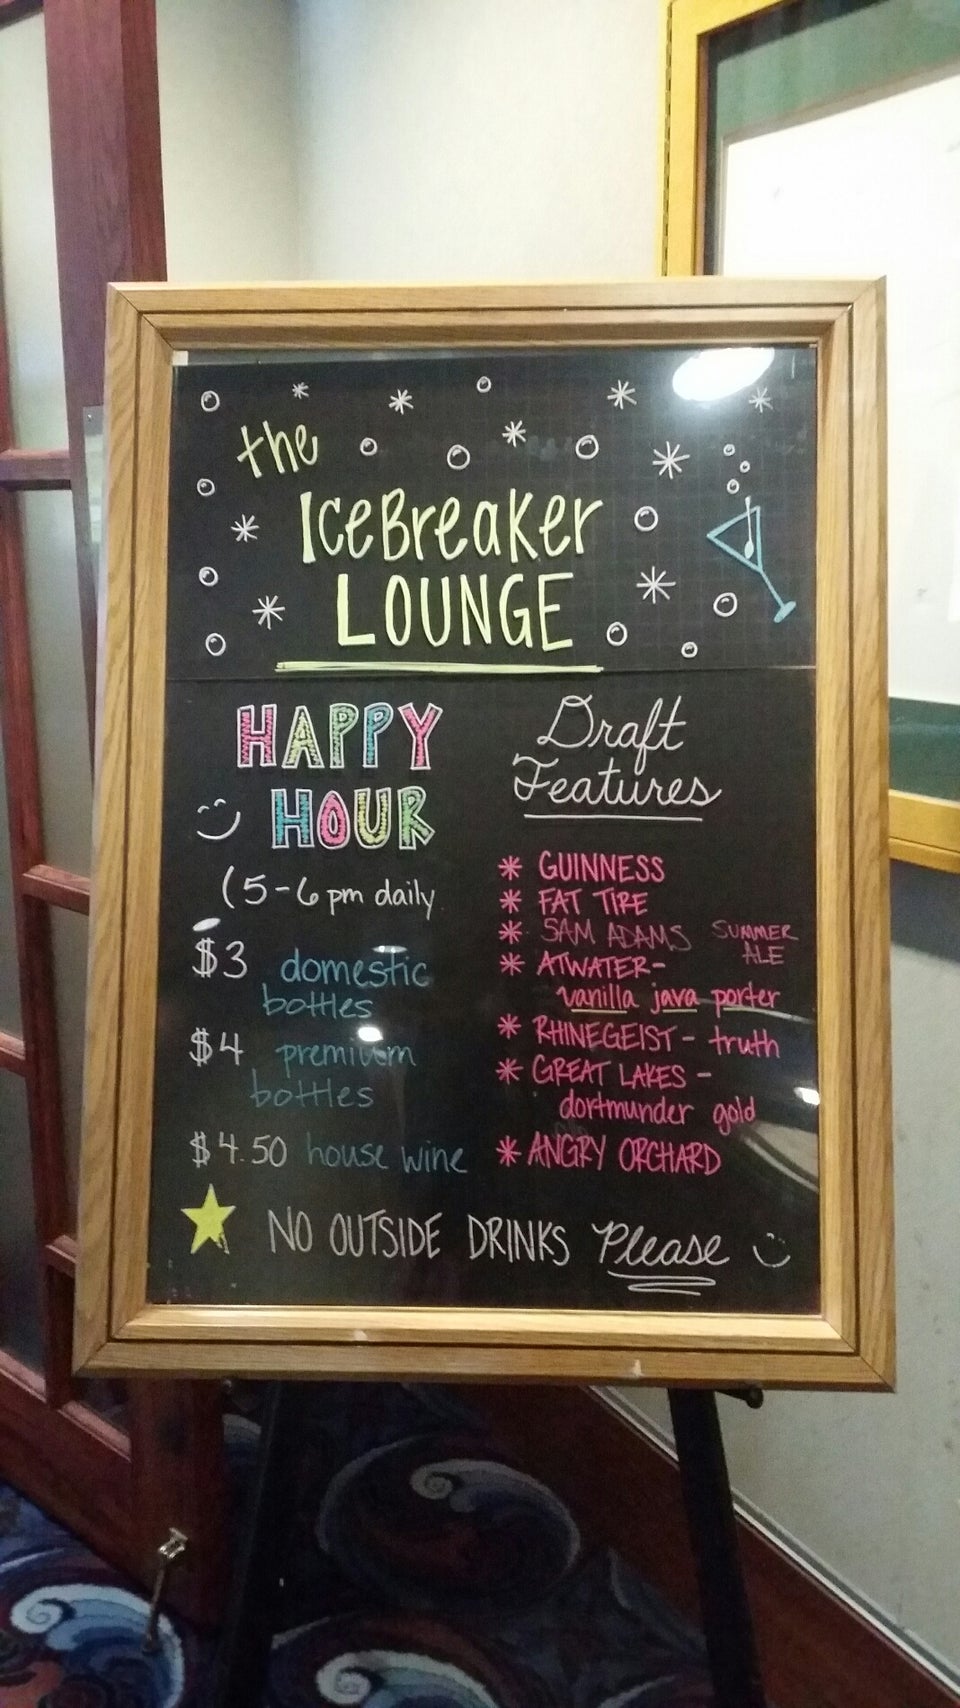 the
IceBreaker
LOUNGE
HAPPY
HOUR
(5-6 pm daily
$3 domestic
bottles
$4 premium
bottles
$4.50 house wine
Draft
Features
* GUINNESS
* FAT TIRE
* SAM ADAMS SUMMER
ALE
* ATWATER-
vanilla java porter
* RHINEGEIST - truth
* GREAT LAKES -
dortmunder gold
* ANGRY ORCHARD
NO OUTSIDE DRINKS Please